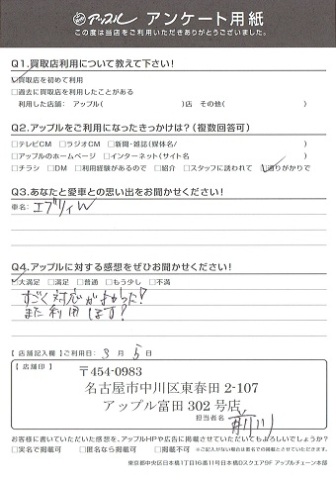 アップル アンケート用紙
この度は当店をご利用いただきありがとうございました。
Q1.買取店利用について教えて下さい!
買取店を初めて利用
□過去に買取店を利用したことがある
利用した店舗: アップル( )店 その他( )
Q2.アップルをご利用になったきっかけは?(複数回答可)
□テレビCM □ラジオCM □新聞・雑誌(媒体名/ )
□アップルのホームページ □インターネット(サイト名 )
□チラシ □DM □利用経験があるので □紹介 □スタッフに誘われて 通りがかりで
Q3.あなたと愛車との思い出をお聞かせください!
車名: エブリィW
Q4.アップルに対する感想をぜひお聞かせください!
大満足 □満足 □普通 □もう少し □不満
すごく対応がよかった!
また利用します!
【店舗記入欄】ご利用日: 3月5日
【店舗印】
〒454-0983
名古屋市中川区東春田 2-107
アップル富田 302 号店
担当者名 前川
お客様に書いていただいた感想を、アップルHPや広告に掲載させていただいてもよろしいでしょうか?
□実名で掲載可 □匿名なら掲載可 □掲載不可 ※ご記入がない場合は匿名での掲載とさせていただきます。
東京都中央区日本橋1丁目16番11号日本橋Dスクエア9F アップルチェーン本部